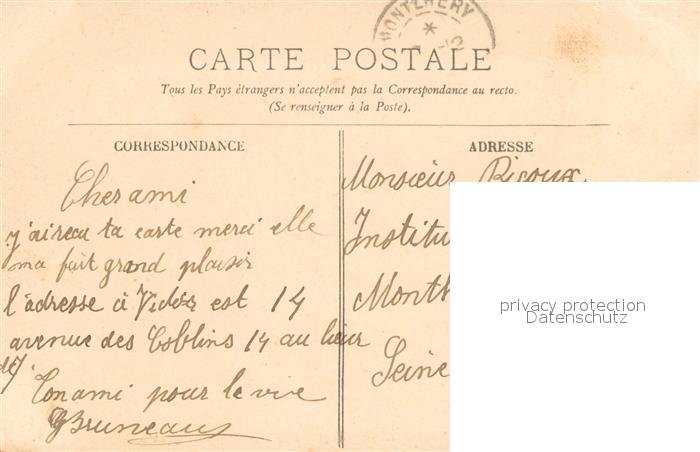 MONTLHERY
CARTE POSTALE
Tous les Pays étrangers n'acceptent pas la Correspondance au recto.
(Se renseigner à la Poste).
CORRESPONDANCE
Cher ami
j'ai reau ta carte merci elle
ma fait grand plaisir
l'adresse à Victor est 14
avenue des Goblins 14 au lieur
de 7
Ton ami pour la vie
Bruneaux
ADRESSE
Monsieur Rigoux
Institu
Montl
Seine
privacy protection
Datenschutz